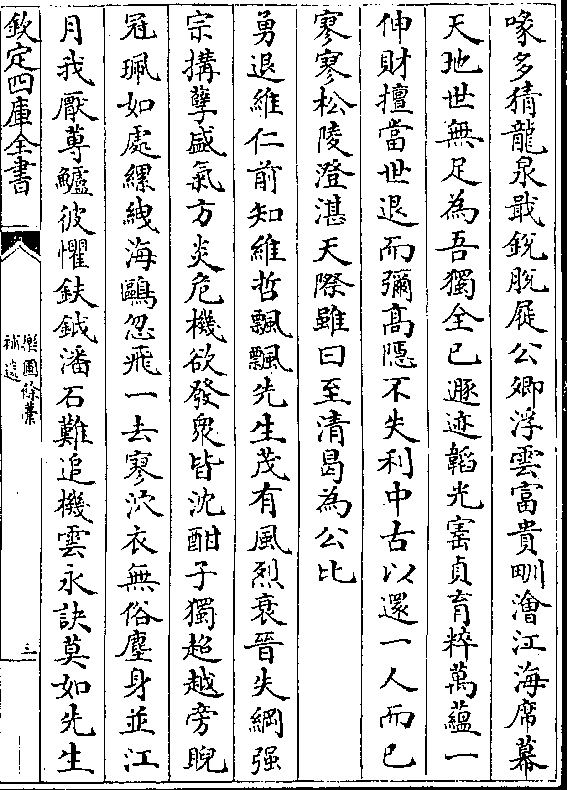 喙多猜龍泉戢銳脫屣公卿浮雲富貴畎澮江海席幕
天地世無足為吾獨全已遯迹韜光窒貞育粹萬蘊一
伸財擅當世退而彌髙隠不失利中古以還一人而已
寥寥松陵澄湛天際雖曰至清曷為公比
勇退維仁前知維哲飄飄先生茂有風烈衰晉失綱强
宗搆孽盛氣方炎危機欲發衆皆沈酣子獨超越旁睨
冠珮如處縲絏海鷗忽飛一去寥泬衣無俗塵身並江
月我厭蓴鱸彼懼鈇鉞潘石難追機雲永訣莫如先生
欽定四庫全書
樂圃餘藁
補遺
三